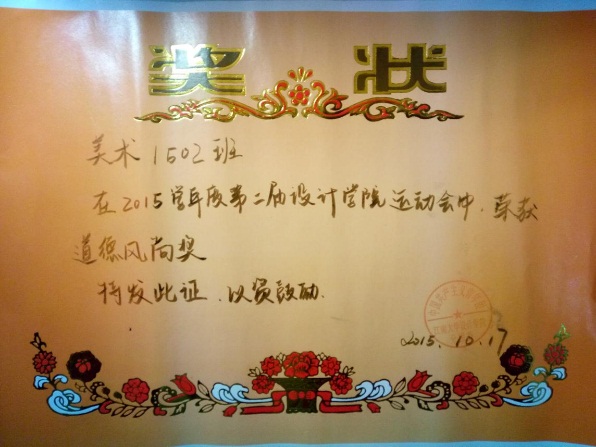 奖 状
美术1502班
在2015学年度第二届设计学院运动会中,荣获
道德风尚奖
特发此证、以资鼓励.
2015.10.17